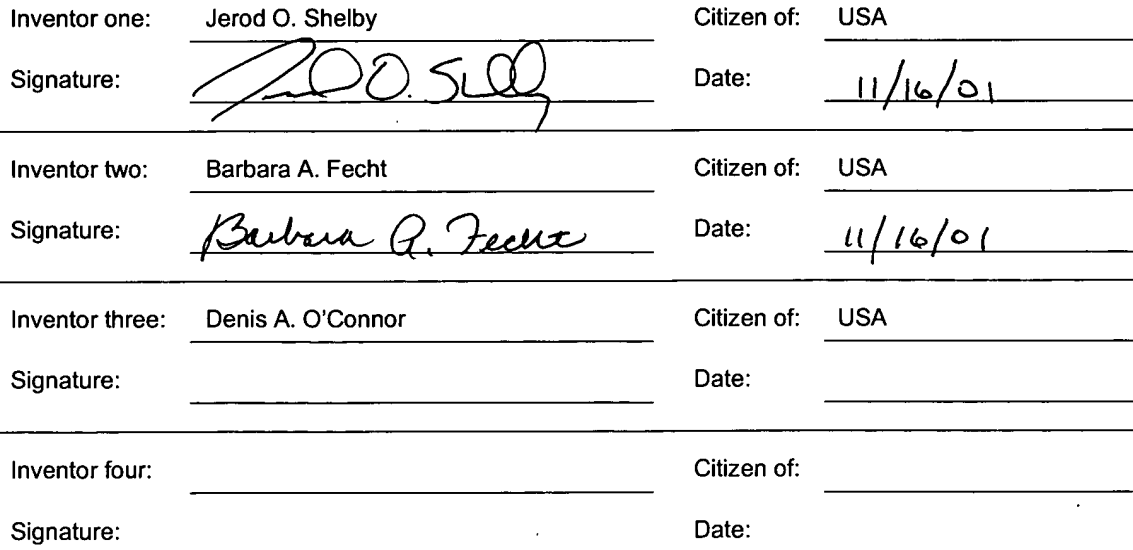 Inventor one: Jerod O. Shelby Citizen of: USA
Signature: Jerod O. Shelby Date: 11/16/01
Inventor two: Barbara A. Fecht Citizen of: USA
Signature: Barbara A. Fecht Date: 11/16/01
Inventor three: Denis A. O'Connor Citizen of: USA
Signature: Date:
Inventor four: Citizen of:
Signature: Date: